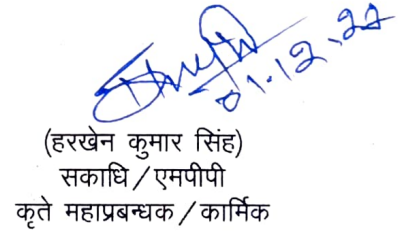 01.12.22
(हरखेन कुमार सिंह)
सकाधि/एमपीपी
कृते महाप्रबन्धक/कार्मिक